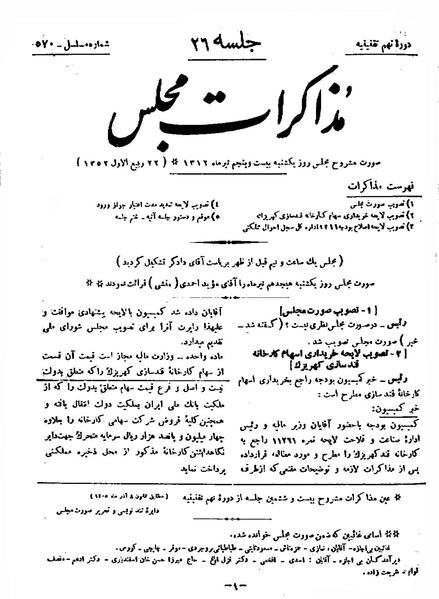 دورهٔ نهم تقنینیه
جلسه ۲۶
شماره مسلسل - ۵۷۰
مذاکرات مجلس
صورت مشروح مجلس روز یکشنبه بیست و پنجم تیر ماه ۱۳۱۲ * (۲۲ ربیع الاول ۱۳۵۲)
فهرست مذاکرات
۱) تصویب صورت مجلس
۲) تصویب لایحه خریداری سهام کارخانه قندسازی کهریزک
۳) تصویب لایحه اصلاح بودجه ۱۳۱۲ اداره کل سجل احوال مملکتی
۴) تصویب لایحه تمدید مدت اعتبار جواز ورود
۵) موقع و دستور جلسه آتیه - ختم جلسه
(مجلس یک ساعت و نیم قبل از ظهر بریاست آقای دادگر تشکیل گردید)
صورت مجلس روز یکشنبه هیجدهم تیر ماه را آقای مؤید احمدی (منشی) قرائت نمودند
[۱ - تصویب صورت مجلس]
رئیس - در صورت مجلس نظری نیست؟ (گفته شد -
خیر) صورت مجلس تصویب شد.
[۲ - تصویب لایحه خریداری اسهام کارخانه
قند سازی کهریزک]
رئیس - خبر کمیسیون بودجه راجع بخریداری اسهام
کارخانهٔ قندسازی مطرح است:
خبر کمیسیون:
کمیسیون بودجه با حضور آقایان وزیر مالیه و رئیس
ادارهٔ صناعت و فلاحت لایحه نمره ۱۱۲۶۱ راجع به
کارخانه قند کهریزک را مطرح و مورد مداقه قرار داده
پس از مذاکرات لازمه و توضیحات مقنعی که از طرف
آقایان داده شد کمیسیون با لایحه پیشنهادی موافقت و
علیهذا راپرت آنرا برای تصویب مجلس شورای ملی
تقدیم میدارد.
ماده واحده - وزارت مالیه مجاز است که آن قسمت
از اسهام کارخانهٔ قندسازی کهریزک را که متعلق بدولت
نیست و اصل و فرع قیمت سهام متعلق بدولت را که از
ملکیت بانک ملی ایران بملکیت دولت انتقال یافته و
همچنین کلیهٔ قروض شرکت سهامی کارخانه را بعلاوه
چهار میلیون و پانصد هزار ریال سرمایه متحرک جهت دایر
نگاهداشتن کارخانهٔ مذکور از محل ذخیره مملکتی
پرداخت نماید
* عین مذاکرات مشروح بیست و ششمین جلسه از دورهٔ نهم تقنینیه
(مطابق قانون ۸ آذر ماه ۱۳۰۵)
دایرهٔ تند نویسی و تحریر صورت مجلس
** اسامی غائبین که ضمن صورت مجلس خوانده شده.
- ۱ -